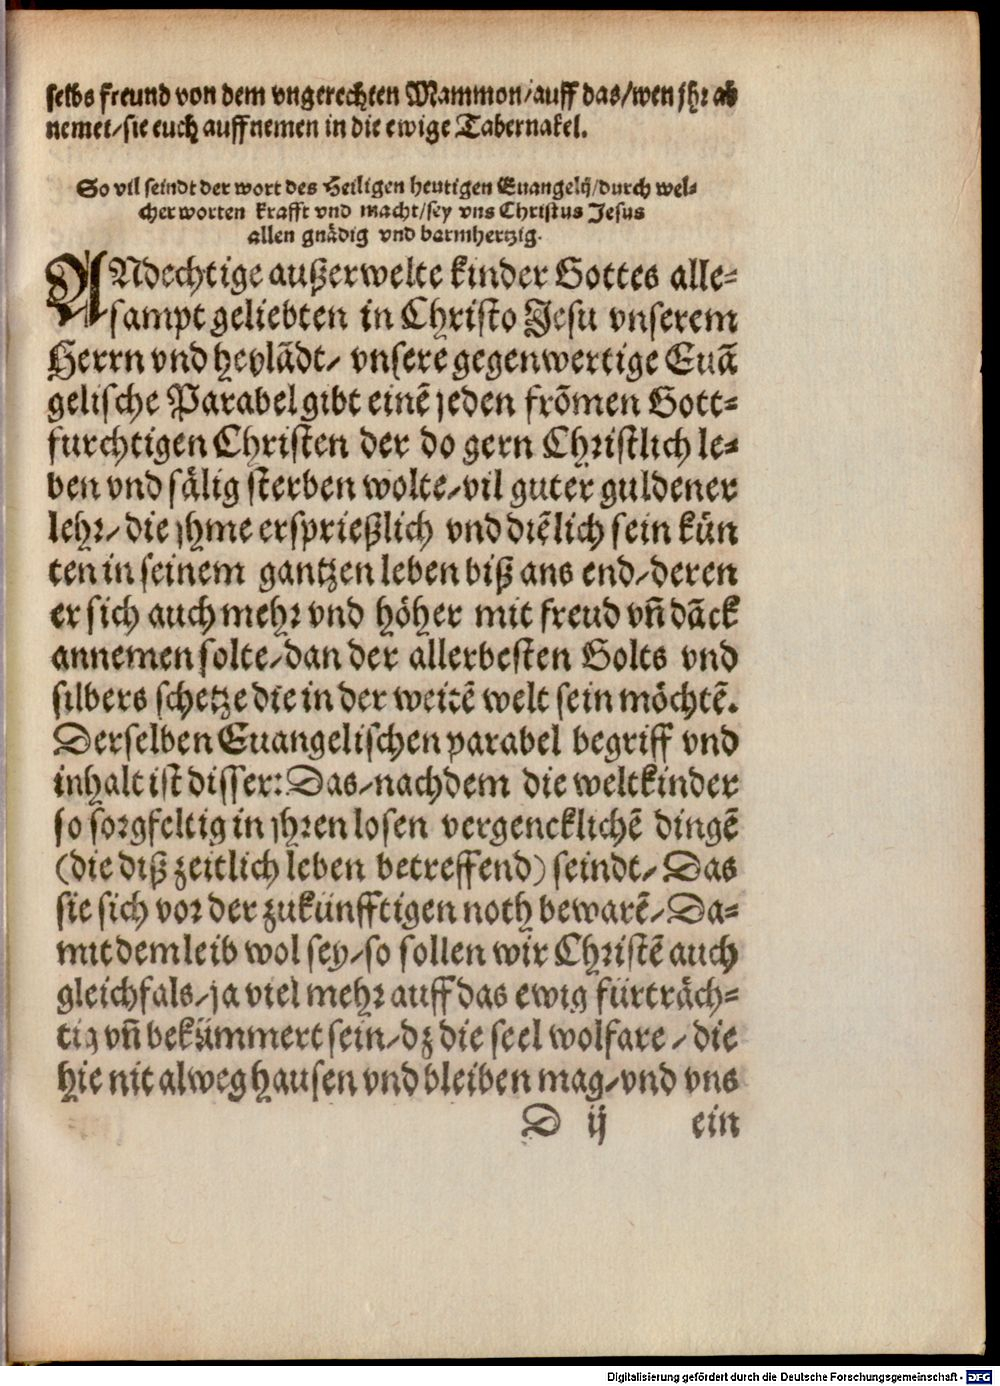 selbs freund von dem vngerechten Mammon/auff das/wen jhr ab
nemet/sie euch auffnemen in die ewige Tabernakel.
So vil seindt der wort des Heiligen heutigen Euangelij/durch wel-
cher worten krafft vnd macht/sey vns Christus Jesus
allen gnädig vnd barmhertzig.
ANdechtige außerwelte kinder Gottes alle-
sampt geliebten in Christo Jesu vnserem
Herrn vnd heylādt/ vnsere gegenwertige Euā
gelische Parabel gibt einē jeden frōmen Gott-
furchtigen Christen der do gern Christlich le-
ben vnd sälig sterben wolte/vil guter guldener
lehr/die jhme ersprießlich vnd diēlich sein kün
ten in seinem gantzen leben biß ans end/deren
er sich auch mehr vnd höher mit freud vn̄ dāck
annemen solte/dan der allerbesten Golts vnd
silbers schetze die in der weitē welt sein möchtē.
Derselben Euangelischen parabel begriff vnd
inhalt ist disser: Das/nachdem die weltkinder
so sorgfeltig in jhren losen vergencklichē dingē
(die diß zeitlich leben betreffend) seindt/Das
sie sich vor der zukünfftigen noth bewarē/Da-
mit dem leib wol sey/so sollen wir Christē auch
gleichfals/ja viel mehr auff das ewig fürträch-
tig vn̄ bekümmert sein/dz die seel wolfare/die
hie nit alweg hausen vnd bleiben mag/vnd vns
D ij ein
Digitalisierung gefördert durch die Deutsche Forschungsgemeinschaft - DFG